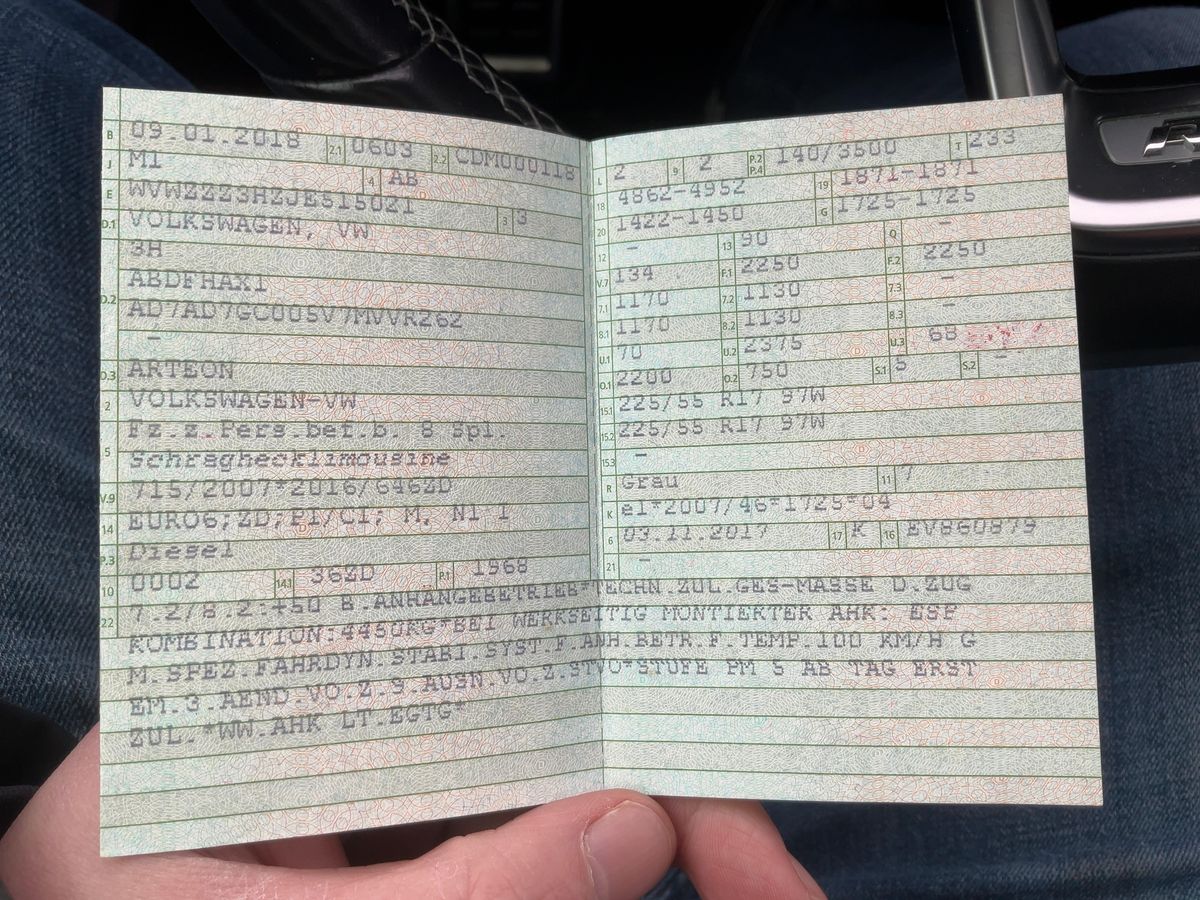 B 09.01.2018 2.1 0603 2.2 CDM000118
J M1 4 AB
E WVWZZZ3HZJE515021 3 3
D.1 VOLKSWAGEN, VW
3H
D.2 ABDFHAX1
AD7AD7GC005V7MVVR262
–
D.3 ARTEON
2 VOLKSWAGEN-VW
5 Fz.z.Pers.bef.b. 8 Spl.
Schräghecklimousine
V.9 715/2007*2016/646ZD
14 EURO6;ZD;PI/CI; M, N1 I
P.3 Diesel
10 0002 14.1 36ZD P.1 1968
L 2 9 2 P.2 P.4 140/3500 T 233
18 4862-4952 19 1871-1871
20 1422-1450 G 1725-1725
12 – 13 90 Q –
V.7 134 F.1 2250 F.2 2250
7.1 1170 7.2 1130 7.3 –
8.1 1170 8.2 1130 8.3 –
U.1 70 U.2 2375 U.3 68
O.1 2200 O.2 750 S.1 5 S.2 –
15.1 225/55 R17 97W
15.2 225/55 R17 97W
15.3 –
R Grau 11 7
K e1*2007/46*1725*04
6 03.11.2017 17 K 16 EV860879
21 –
22 7.2/8.2:+50 B.ANHÄNGEBETRIEB*TECHN.ZUL.GES-MASSE D.ZUG
KOMBINATION:4450KG*BEI WERKSEITIG MONTIERTER AHK: ESP
M.SPEZ.FAHRDYN.STABI.SYST.F.ANH.BETR.F.TEMP.100 KM/H G
EM.3.AEND.VO.Z.9.AUSN.VO.Z.STVO*STUFE PM 5 AB TAG ERST
ZUL.*WW.AHK LT.EGTG*